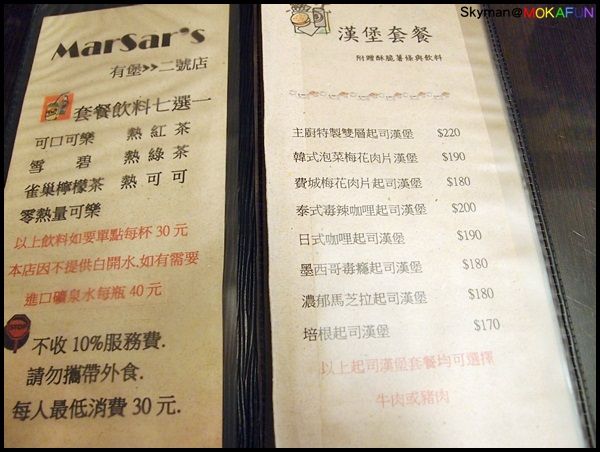 Skyman@MOKAFUN
MarSar's
有堡>>二號店
套餐飲料七選一
可口可樂 熱紅茶
雪碧 熱綠茶
雀巢檸檬茶 熱可可
零熱量可樂
以上飲料如要單點每杯30元
本店因不提供白開水.如有需要
進口礦泉水每瓶40元
不收10%服務費.
請勿攜帶外食.
每人最低消費30元.
漢堡套餐
附贈酥脆薯條與飲料
主廚特製雙層起司漢堡 $220
韓式泡菜梅花肉片漢堡 $190
費城梅花肉片起司漢堡 $180
泰式毒辣咖哩起司漢堡 $200
日式咖哩起司漢堡 $190
墨西哥毒癮起司漢堡 $180
濃郁馬芝拉起司漢堡 $180
培根起司漢堡 $170
以上起司漢堡套餐均可選擇
牛肉或豬肉